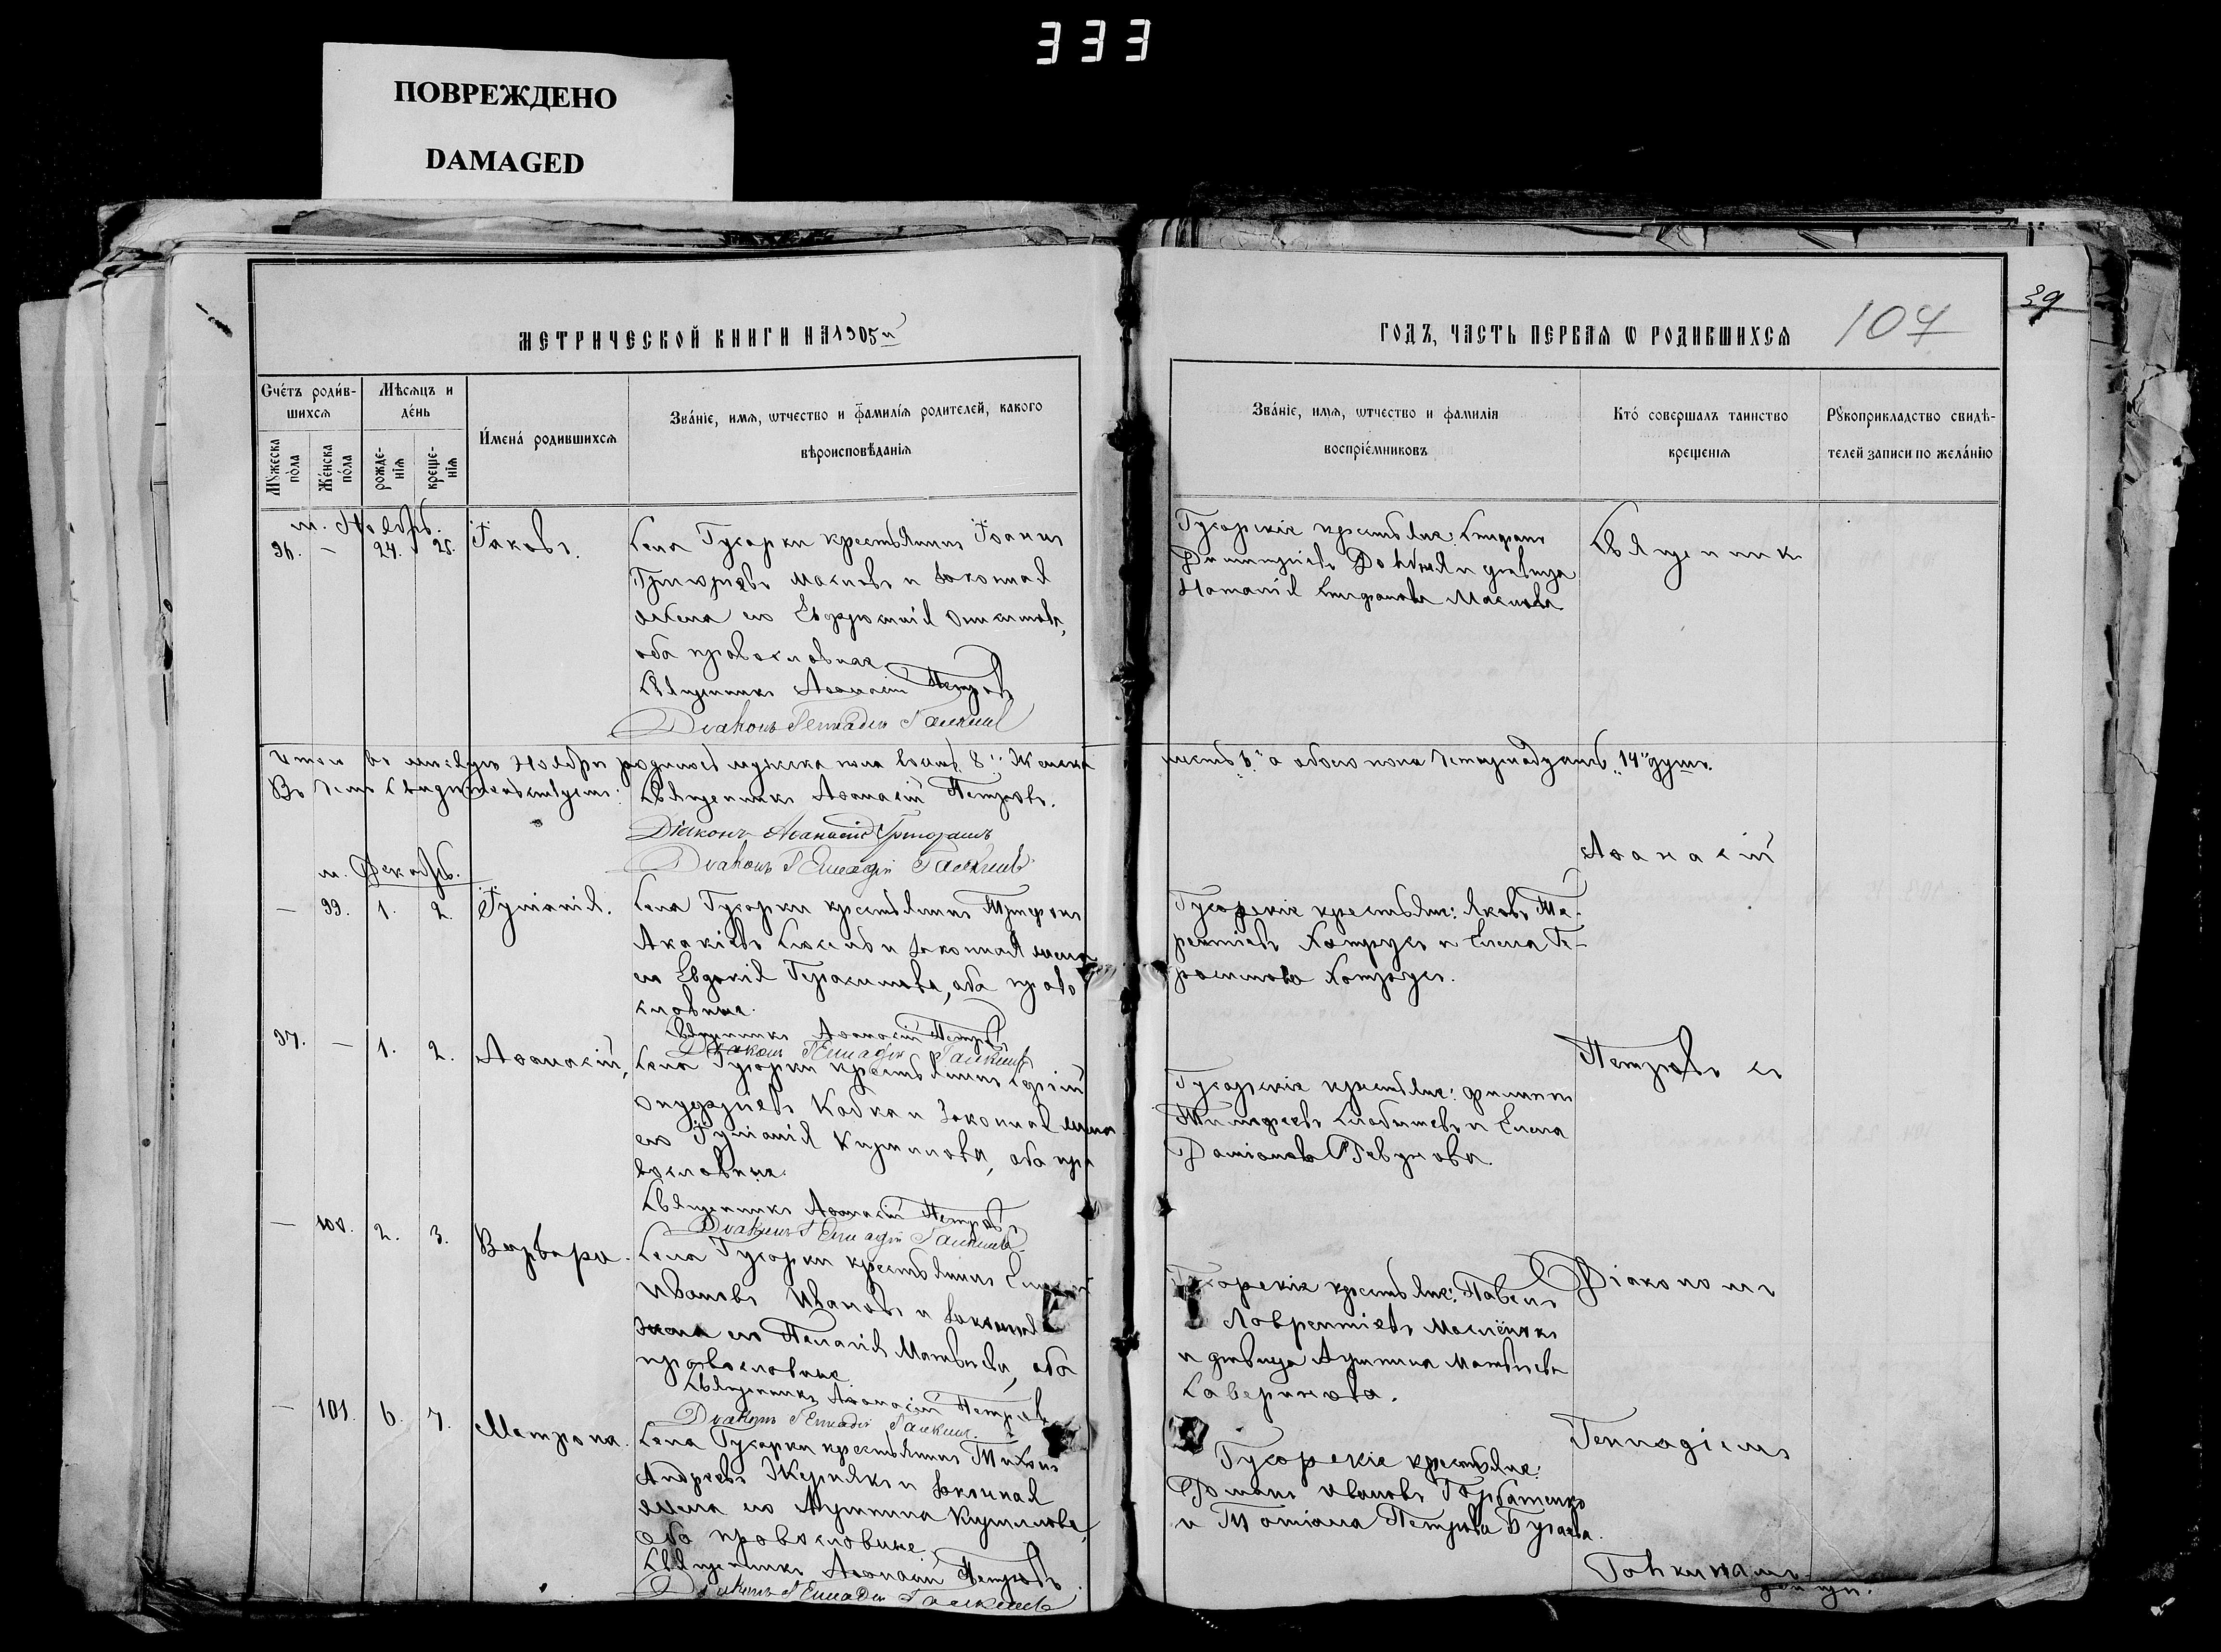 333
ПОВРЕЖДЕНО
DAMAGED
39
МЕТРИЧЕСКОЙ КНИГИ НА 1905 й
ГОДЪ, ЧАСТЬ ПЕРВАЯ Ѡ РОДИВШИХСЯ
104
Счétъ роди́в-
шихся
Мѣсяцъ и
дéнь
Мꙋжеска
пóла
Жéнска
пóла
рожде-
нія
креще-
нія
И҆мена́ родившихся
Зва́ніе, имя, ѿтчество и фамилія родителей, какого
вѣроисповѣданія
Зва́ніе, имя, ѿтчество и фамилія
воспріéмниковъ
Ктó совершалъ таинство
крещенія
Рꙋкоприкладство свидѣ-
телей записи по жела́нію
м. Ноябрь.
96. — 24. 25. Іаковъ.
Села Гусарки крестьянинъ Іоаннъ
Григоріевъ и законная
жена его Евфросинія
оба православные
Священникъ Аѳанасій Петровъ
Діаконъ Геннадій Галкинъ
Гусарскіе крестьяне: Стефанъ
Димитріевъ и дѣвица
Наталія Стефанова
Священник
Итого въ мѣсяцѣ Ноябрѣ родилось мужеска пола восемь „8" женска
шесть „6" а обоего пола четырнадцать „14" душъ.
Въ чемъ свидѣтельствуемъ: Священникъ Аѳанасій Петровъ.
Діаконъ Аѳанасій
Діаконъ Геннадій Галкинъ
Аѳанасій
м. Декабрь.
— 99. 1. 2. Іуліанія.
Села Гусарки крестьянинъ Трифонъ
Акакіевъ и законная жена
его Евдокія Герасимова, оба право
славные.
Священникъ Аѳанасій Петровъ
Діаконъ Геннадій Галкинъ
Гусарскіе крестьяне: Яковъ Те-
рентіевъ и Елена Ге-
расимова
97. — 1. 2. Аѳанасій,
Села Гусарки крестьянинъ Сергій
Онуфріевъ Кобка и законная жена
его Іуліанія Кириллова, оба пра
вославные.
Священникъ Аѳанасій Петровъ
Діаконъ Геннадій Галкинъ
Гусарскіе крестьяне: Филиппъ
Тимофеевъ и Елена
Даміанова
Петровъ съ
— 100. 2. 3. Варвара.
Села Гусарки крестьянинъ
Ивановъ Ивановъ и законная
жена его Пелагія Матвѣева, оба
православные.
Священникъ Аѳанасій Петровъ
Діаконъ Геннадій Галкинъ.
Гусарскіе крестьяне: Павелъ
Лаврентіевъ
и дѣвица Агриппина Матвѣева
Саверинова.
Діакономъ
— 101. 6. 7. Матрона.
Села Гусарки крестьянинъ Тихонъ
Андреевъ Жернякъ и законная
жена его Агриппина Кириллова,
оба православные
Священникъ Аѳанасій Петровъ.
Діаконъ Геннадій Галкинъ
Гусарскіе крестьяне:
Романъ Ивановъ Горбатенко
и Татіана Петрова Бугаева.
Геннадіемъ
Галкинымъ